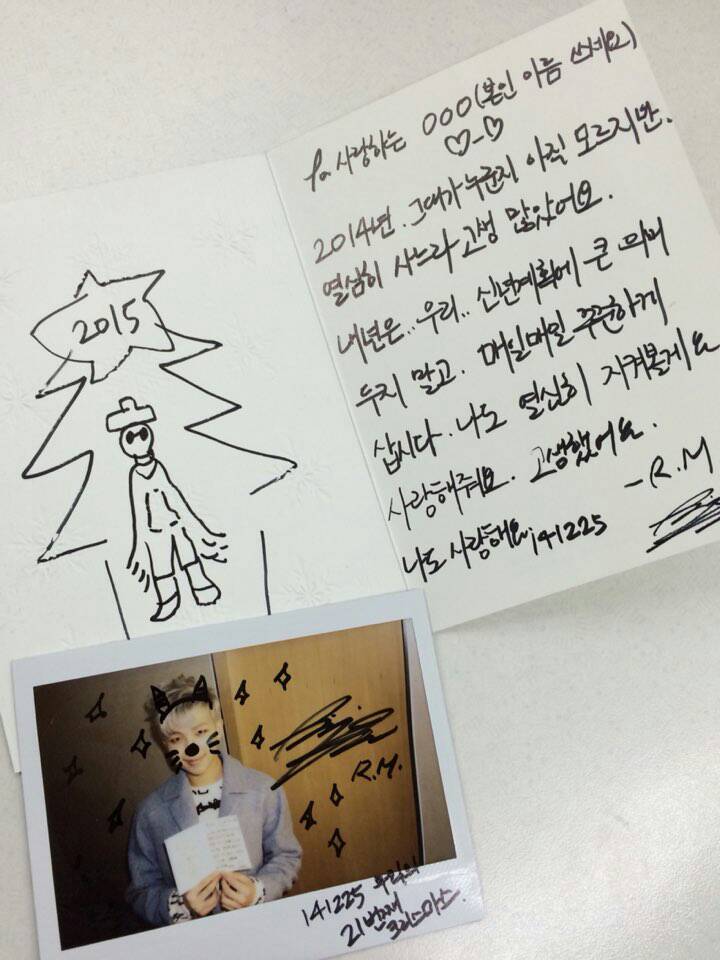 2015
To. 사랑하는 OOO(본인 이름 쓰세요)
♡-♡
2014년. 그대가 누군지 아직 모르지만.
열심히 사느라 고생 많았어요.
내년은.. 우리.. 신년계획에 큰 의미
두지 말고. 매일매일 꾸준하게
삽시다. 나도 열심히 지켜볼게요
사랑해줘요. 고생했어요.
-R.M
나도 사랑해요. 141225
R.M.
141225
21번째
크리스마스.